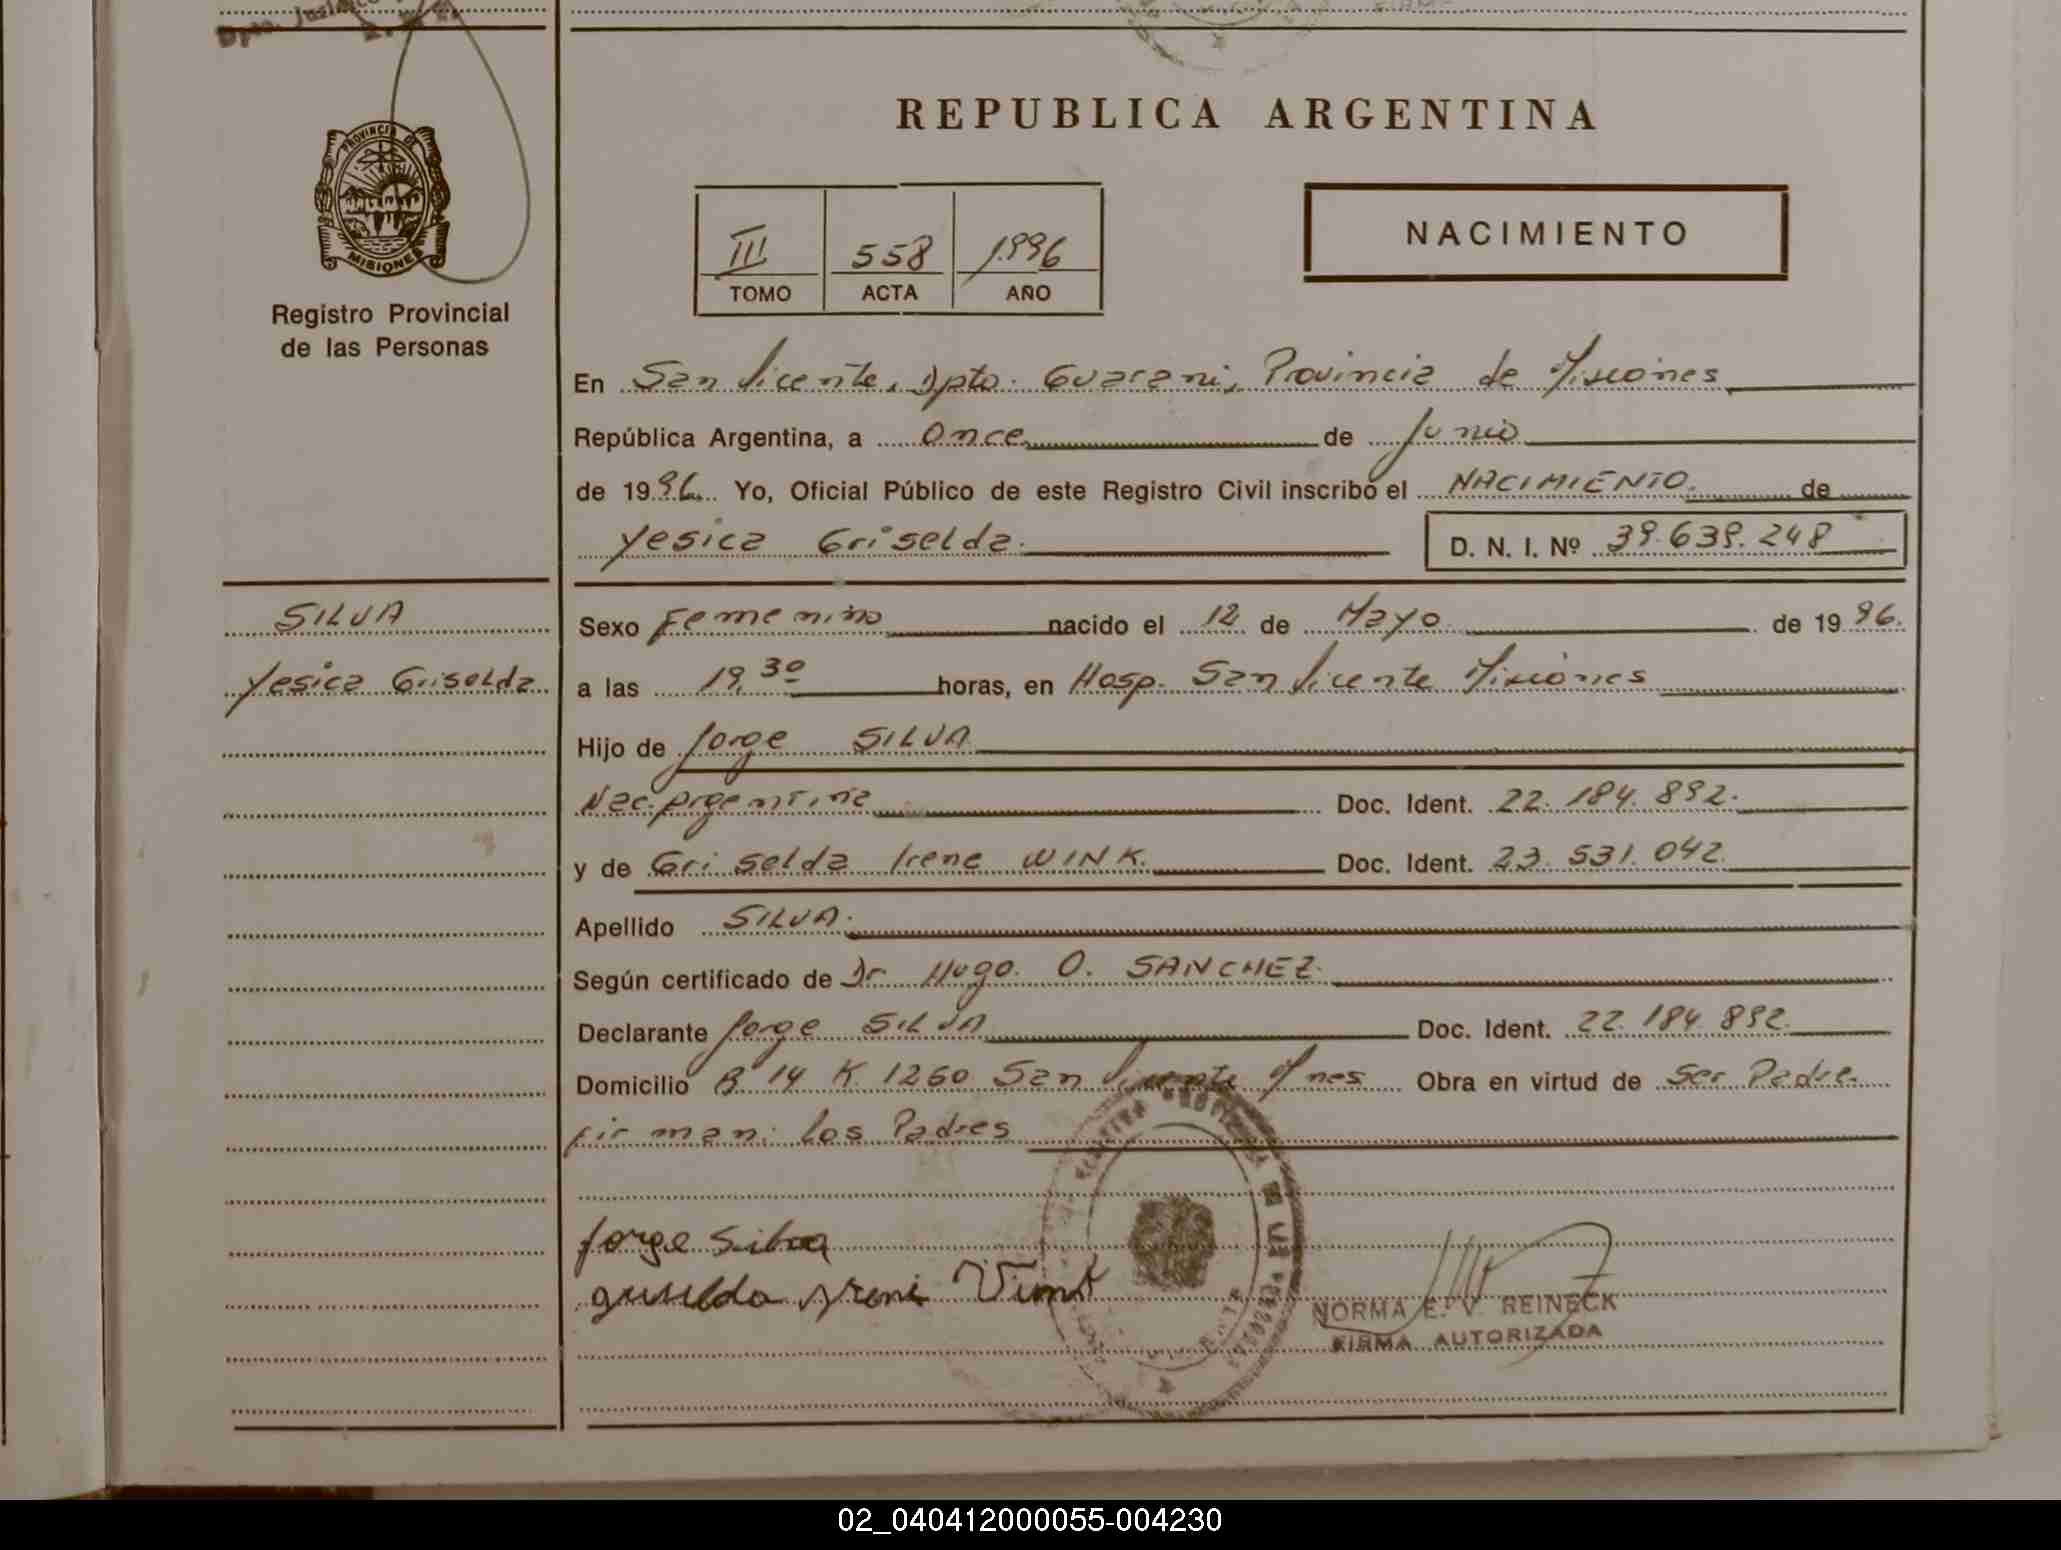 REPUBLICA ARGENTINA
PROVINCIA DE
MISIONES
Registro Provincial
de las Personas
III 558 1996
TOMO ACTA AÑO
NACIMIENTO
En San Vicente, Dpto. Guarani, Provincia de Misiones
República Argentina, a Once de Junio
de 1996. Yo, Oficial Público de este Registro Civil inscribo el NACIMIENTO. de
Yesica Griselda. D. N. I. Nº 39.639.248
SILVA
Yesica Griselda
Sexo Femenino nacido el 12 de Mayo de 1996.
a las 19,30 horas, en Hosp. San Vicente Misiones
Hijo de Jorge SILVA
Nac. Argentina Doc. Ident. 22.184.892.
y de Griselda Irene WINK. Doc. Ident. 23.531.042
Apellido SILVA.
Según certificado de Dr Hugo. O. SANCHEZ.
Declarante Jorge SILVA Doc. Ident. 22.184.892
Domicilio R. 14 K. 1260 San Vicente Mnes Obra en virtud de Ser Padre.
firman: los Padres
Jorge Silva
NORMA E. V. REINECK
FIRMA AUTORIZADA
02_040412000055-004230